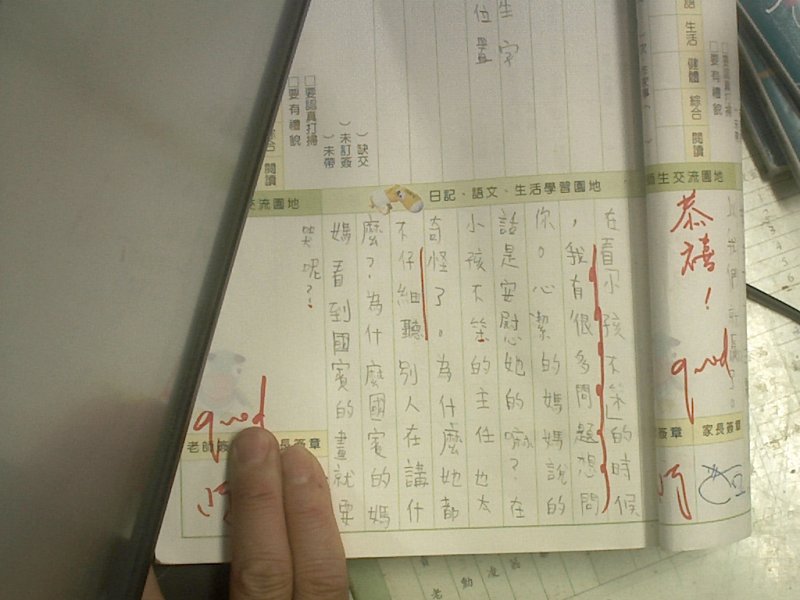 生字
位置
恭禧！
good
師生交流園地
家長簽章
語 生活 健體 綜合 閱讀
□要認真打掃
□要有禮貌
日記、語文、生活學習園地
在看「小孩不笨」的時候
，我有很多問題想問
你。心潔的媽媽說的
話是安慰她的嘛？在
小孩不笨的主任也太
奇怪了。為什麼她都
不仔細聽別人在講什
麼？為什麼國賓的媽
媽看到國賓的畫就要
哭呢？！
）缺交
）未訂簽
）未帶
□要認真打掃
□要有禮貌
綜合 閱讀
交流園地
good
老師簽
長簽章